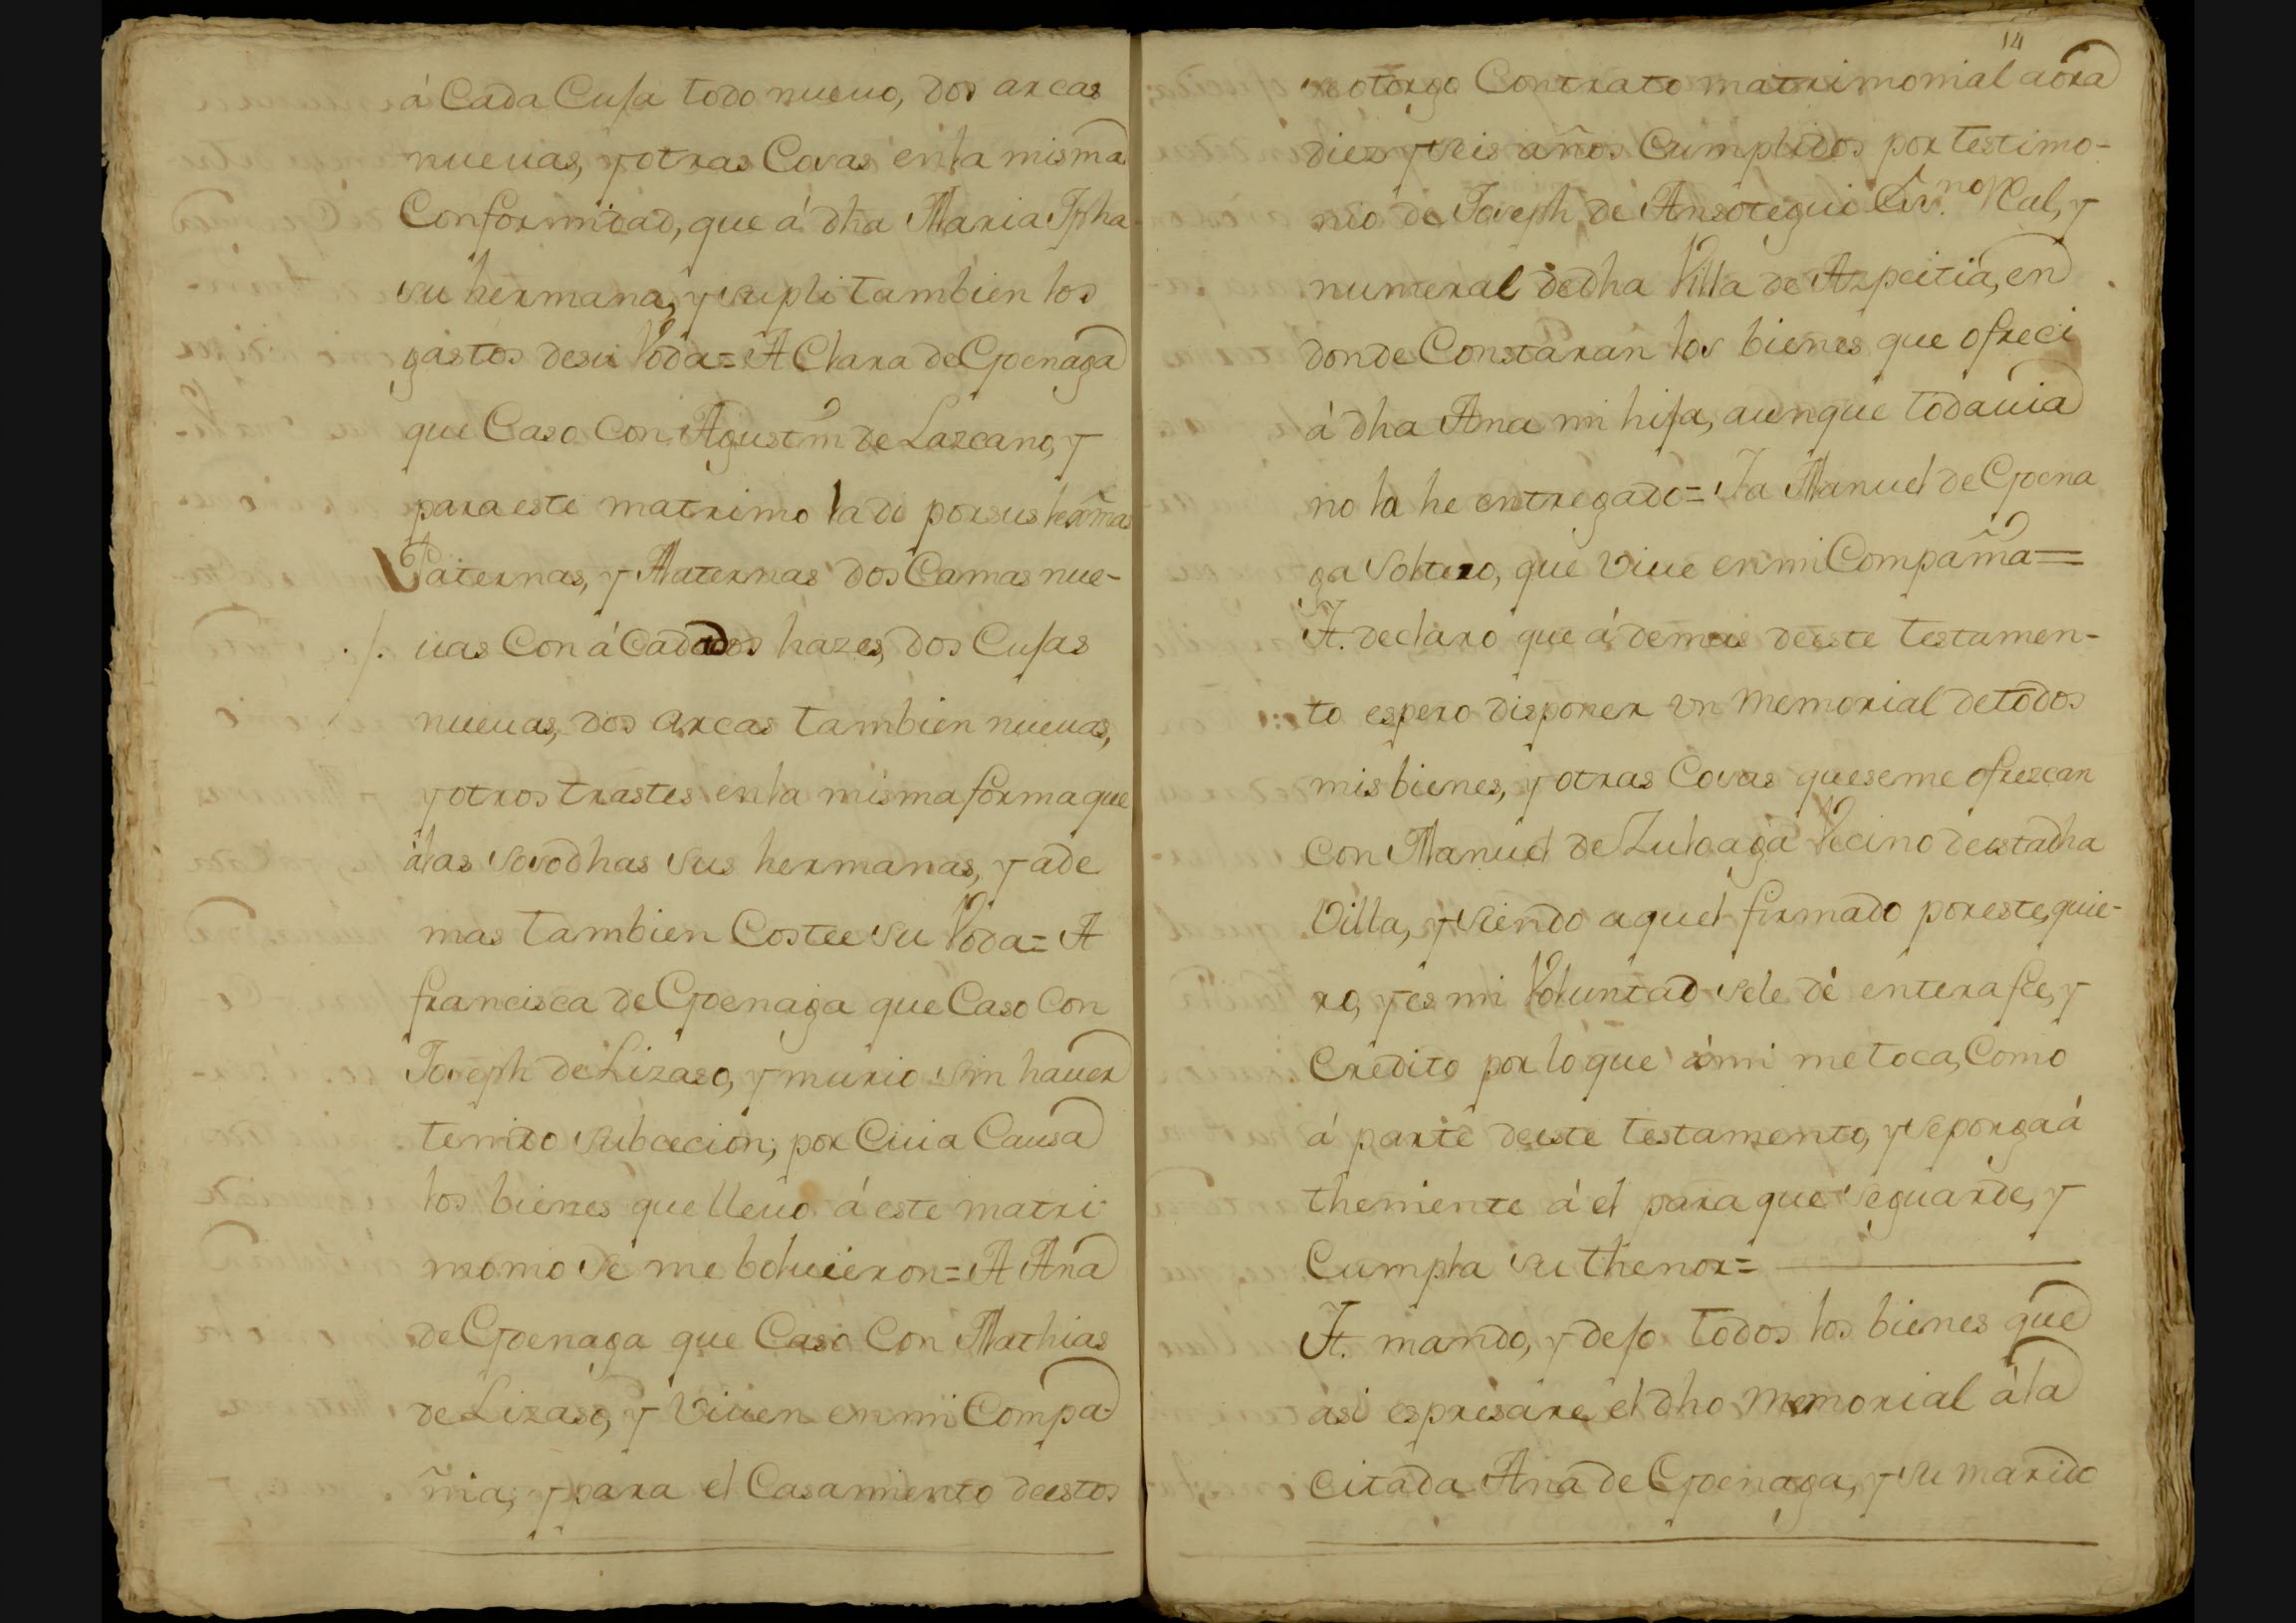 á Cada Cuja todo nueuo, dos arcas
nueuas, y otras Cosas en la misma
Conformidad, que á dha Maria Jpha
su hermana, y supli tambien los
gastos de su Voda = A Clara de Goenaga
que Caso con Agustin de Lazcano, y
para este matrimo la di por sus lexmas
Paternas, y Maternas dos Camas nue-
uas Con á Cada dos hazes, dos Cujas
nueuas, dos arcas tambien nueuas,
y otros trastes en la misma forma que
álas sosodhas sus hermanas, y ade
mas tambien Costee su Voda = A
francisca de Goenaga que Caso Con
Joseph de Lizaso, y murio sin hauer
tenido subcecion; por Cuia Causa
los bienes que lleuo á este matri-
monio se me boluieron = A Ana
de Goenaga que Caso Con Mathias
de Lizaso, y Viuen en mi Compa-
ñia, y para el Casamiento de estos
14
se otorgo Contrato matrimonial aora
diez y seis años Cumplidos por testimo-
nio de Joseph de Ansotegui Esc.no Real, y
numeral de dha Villa de Azpeitia, en
donde Constaran los bienes que ofreci
á dha Ana mi hija, aunque todauia
no la he entregado = Ya Manuel de Goena
ga Soltero, que Viue en mi Compañia =
It. declaro que á demas de este testamen-
to espero disponer vn memorial de todos
mis bienes, y otras Cosas que se me ofrezcan
con Manuel de Zuloaga Vecino de esta dha
Villa, y siendo aquel firmado por este, quie-
ro, y es mi Voluntad se le dé entera fee, y
Credito por lo que ami me toca, Como
á parte de este testamento, y se ponga á
theniente á el para que se guarde, y
Cumpla su thenor =
It. mando, y dejo todos los bienes que
asi espresare el dho memorial á la
Citada Ana de Goenaga, y su marido